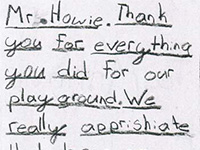 Mr. Howie. Thank
you for everything
you did for our
playground. We
really apprishiate